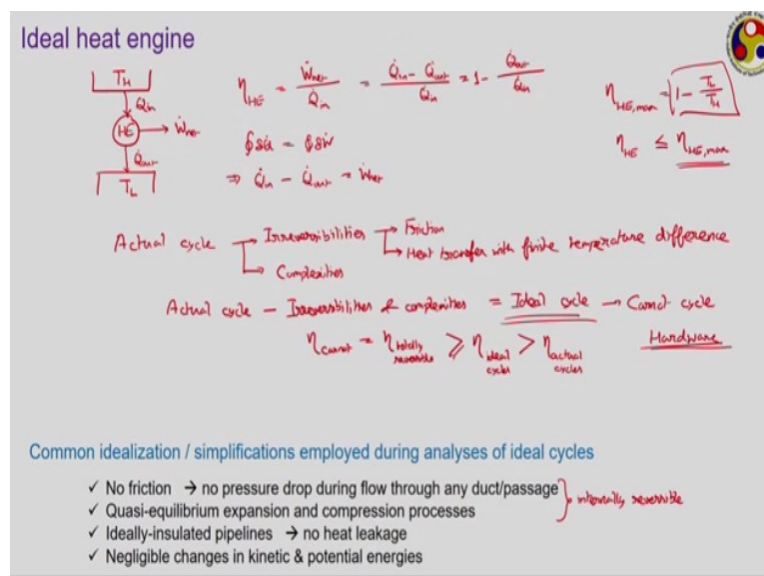 Ideal heat engine
T_H
Q̇in
HE → Ẇnet
Q̇out
T_L
η_HE = Ẇnet / Q̇in = (Q̇in - Q̇out) / Q̇in = 1 - Q̇out / Q̇in
∮δQ̇ = ∮δẆ
⇒ Q̇in - Q̇out = Ẇnet
η_HE,max = 1 - T_L / T_H
η_HE ≤ η_HE,max
Actual cycle → Irreversibilities → Friction
→ Heat transfer with finite temperature difference
→ Complexities
Actual cycle - Irreversibilities & complexities = Ideal cycle → Carnot cycle
η_Carnot = η_totally reversible ⩾ η_ideal cycles > η_actual cycles
Hardware
Common idealization / simplifications employed during analyses of ideal cycles
✓ No friction → no pressure drop during flow through any duct/passage
✓ Quasi-equilibrium expansion and compression processes
} internally reversible
✓ Ideally-insulated pipelines → no heat leakage
✓ Negligible changes in kinetic & potential energies